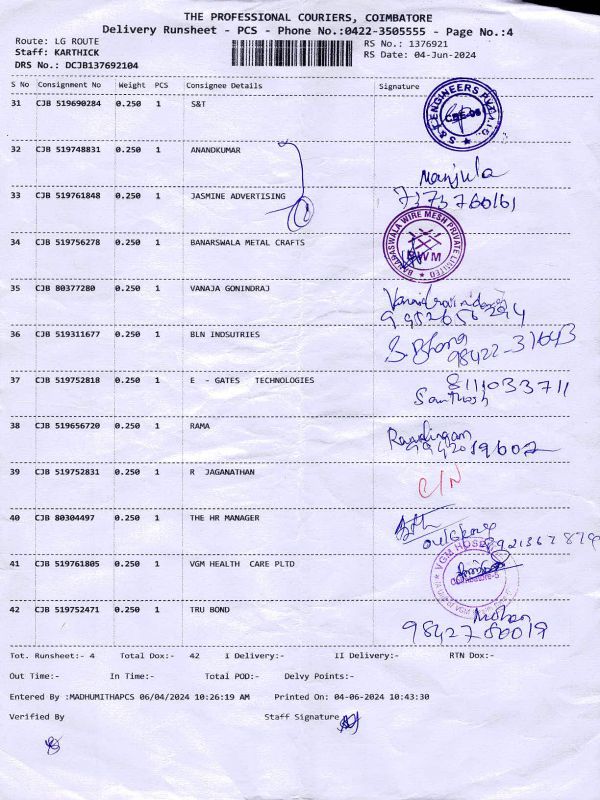 THE PROFESSIONAL COURIERS, COIMBATORE
Delivery Runsheet - PCS - Phone No.:0422-3505555 - Page No.:4
Route: LG ROUTE RS No.: 1376921
Staff: KARTHICK RS Date: 04-Jun-2024
DRS No.: DCJB137692104
S No Consignment No Weight PCS Consignee Details Signature
31 CJB 519690284 0.250 1 S&T
32 CJB 519748831 0.250 1 ANANDKUMAR Manjula
33 CJB 519761848 0.250 1 JASMINE ADVERTISING 7373760161
34 CJB 519756278 0.250 1 BANARSWALA METAL CRAFTS BANAGASWALA WIRE MESH PRIVATE LIMITED
35 CJB 80377280 0.250 1 VANAJA GONINDRAJ
36 CJB 519311677 0.250 1 BLN INDSUTRIES 98422-31643
37 CJB 519752818 0.250 1 E - GATES TECHNOLOGIES 8111033711
Santhosh
38 CJB 519656720 0.250 1 RAMA
39 CJB 519752831 0.250 1 R JAGANATHAN C/N
40 CJB 80304497 0.250 1 THE HR MANAGER
41 CJB 519761805 0.250 1 VGM HEALTH CARE PLTD
42 CJB 519752471 0.250 1 TRU BOND Mohan
Tot. Runsheet:- 4 Total Dox:- 42 I Delivery:- II Delivery:- RTN Dox:-
Out Time:- In Time:- Total POD:- Delvy Points:-
Entered By :MADHUMITHAPCS 06/04/2024 10:26:19 AM Printed On: 04-06-2024 10:43:30
Verified By Staff Signature